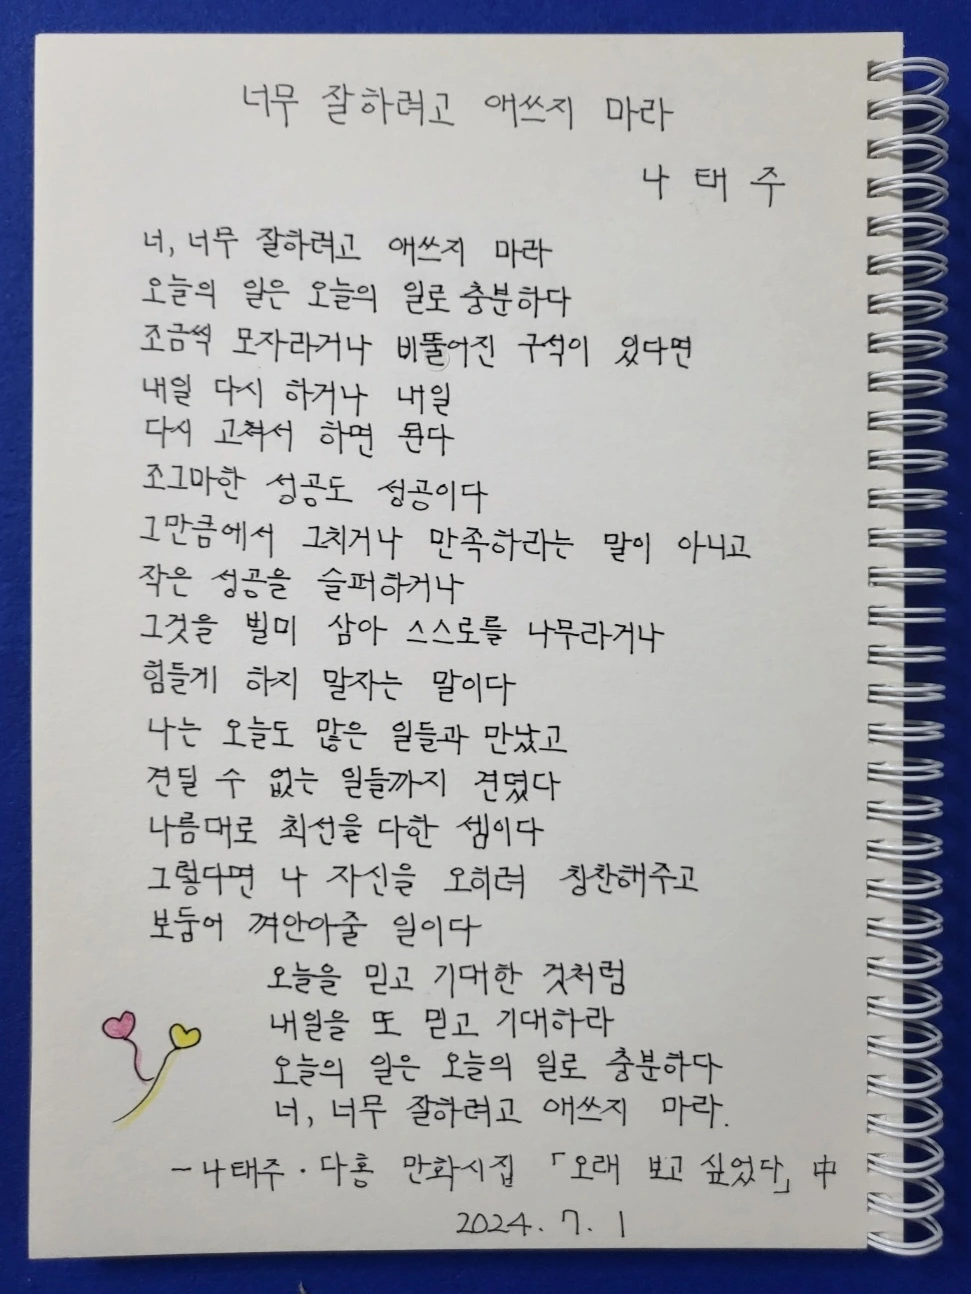 너무 잘하려고 애쓰지 마라
나 태 주
너, 너무 잘하려고 애쓰지 마라
오늘의 일은 오늘의 일로 충분하다
조금씩 모자라거나 비뚤어진 구석이 있다면
내일 다시 하거나 내일
다시 고쳐서 하면 된다
조그마한 성공도 성공이다
그만큼에서 그치거나 만족하라는 말이 아니고
작은 성공을 슬퍼하거나
그것을 빌미 삼아 스스로를 나무라거나
힘들게 하지 말자는 말이다
나는 오늘도 많은 일들과 만났고
견딜 수 없는 일들까지 견뎠다
나름대로 최선을 다한 셈이다
그렇다면 나 자신을 오히려 칭찬해주고
보듬어 껴안아줄 일이다
오늘을 믿고 기대한 것처럼
내일을 또 믿고 기대하라
오늘의 일은 오늘의 일로 충분하다
너, 너무 잘하려고 애쓰지 마라.
- 나태주 · 다홍 만화시집 「오래 보고 싶었다」 中
2024. 7. 1